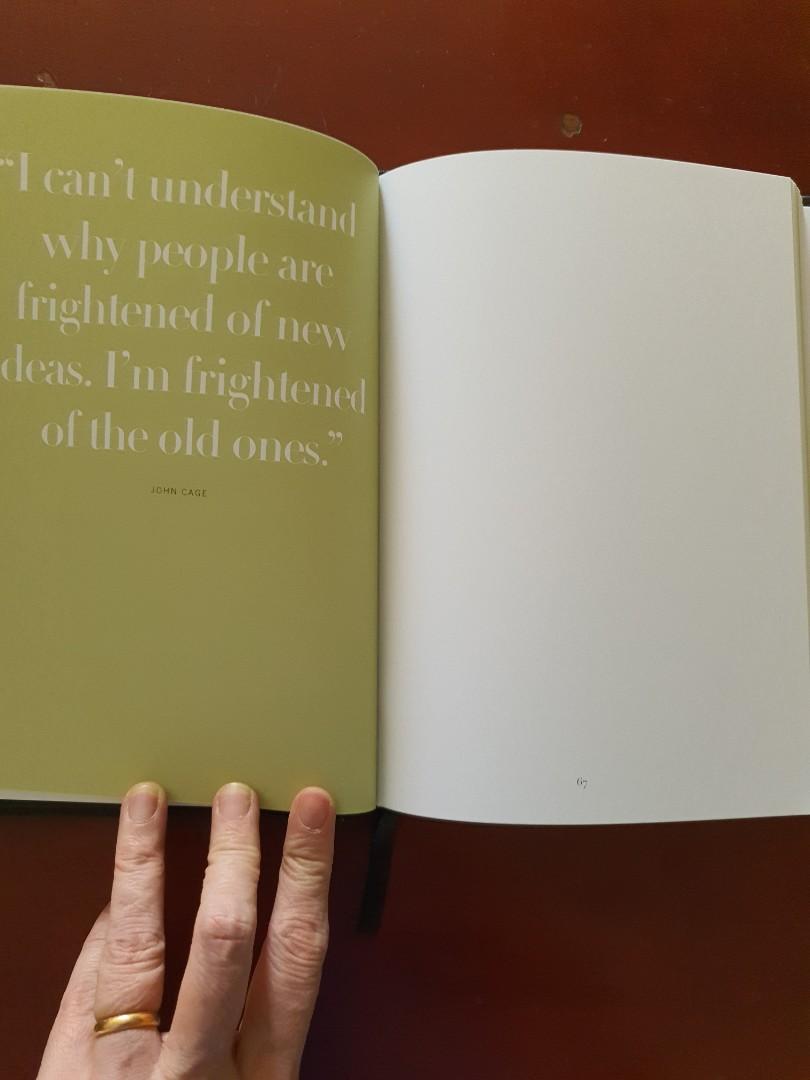 “I can’t understand
why people are
frightened of new
deas. I’m frightened
of the old ones.”
JOHN CAGE
67